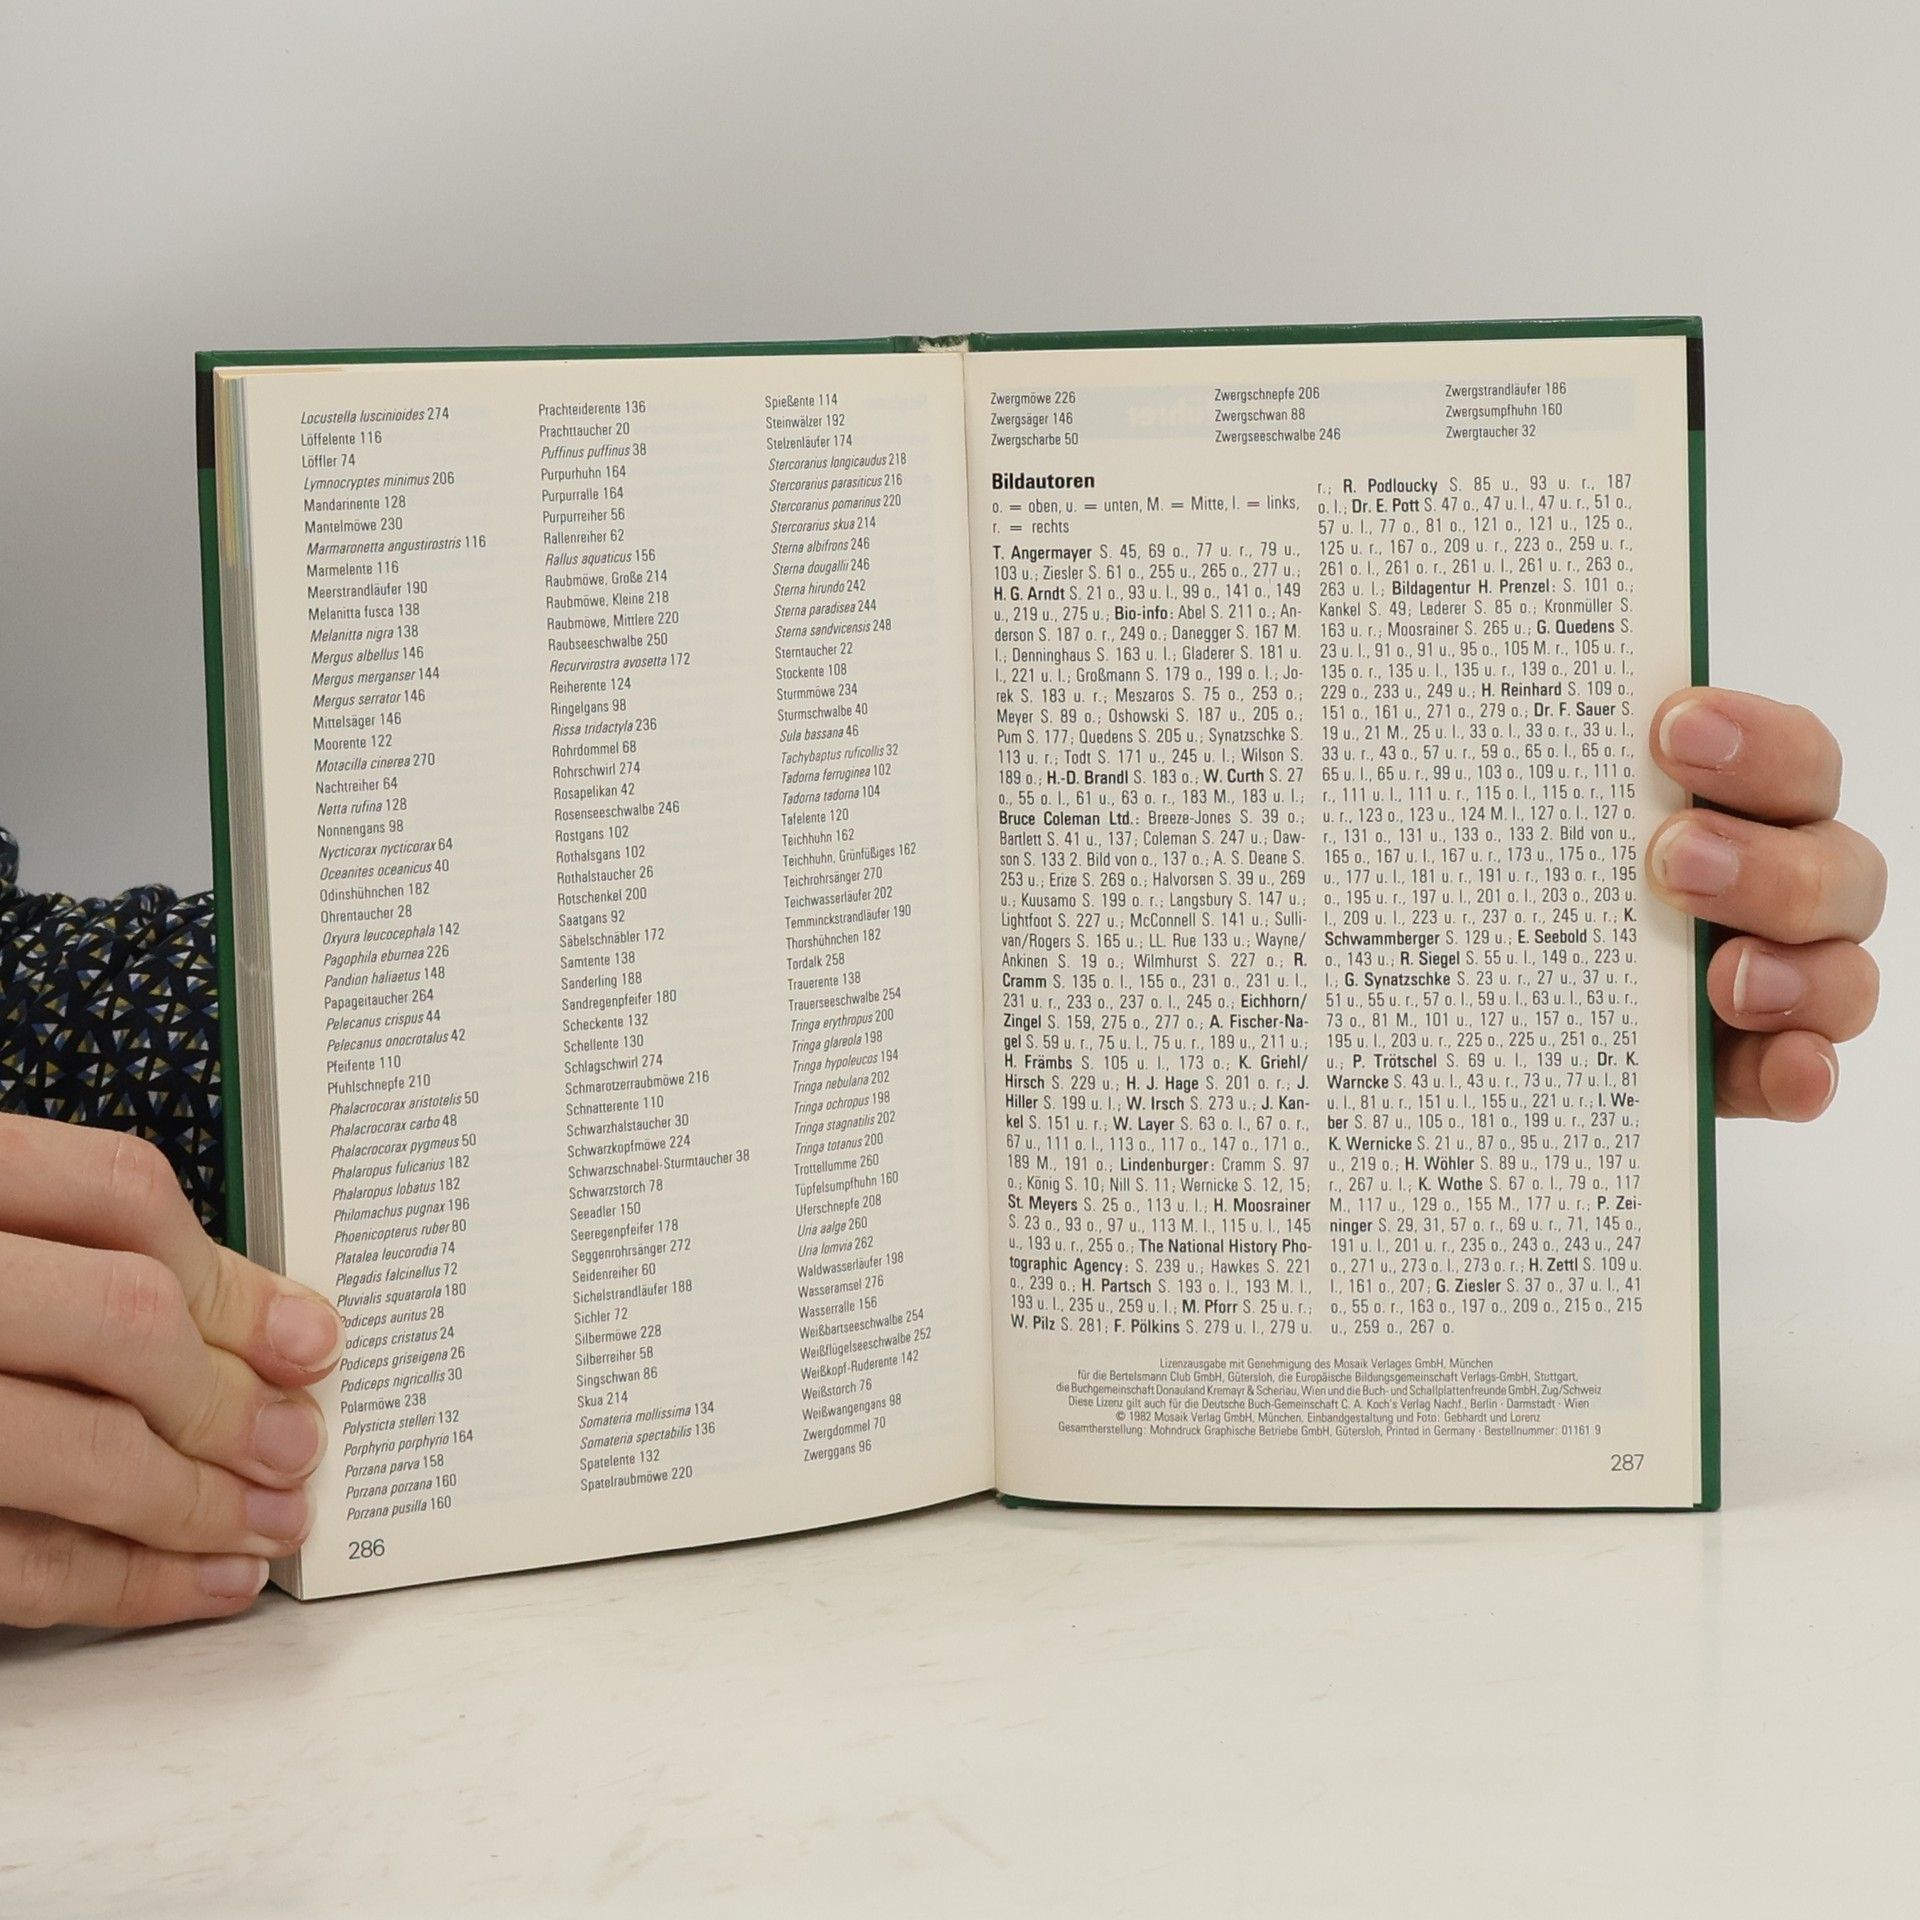 Locustella luscinioides 274
Löffelente 116
Löffler 74
Lymnocryptes minimus 206
Mandarinente 128
Mantelmöwe 230
Marmaronetta angustirostris 116
Marmelente 116
Meerstrandläufer 190
Melanitta fusca 138
Melanitta nigra 138
Mergus albellus 146
Mergus merganser 144
Mergus serrator 146
Mittelsäger 146
Moorente 122
Motacilla cinerea 270
Nachtreiher 64
Netta rufina 128
Nonnengans 98
Nycticorax nycticorax 64
Oceanites oceanicus 40
Odinshühnchen 182
Ohrentaucher 28
Oxyura leucocephala 142
Pagophila eburnea 226
Pandion haliaetus 148
Papageitaucher 264
Pelecanus crispus 44
Pelecanus onocrotalus 42
Pfeifente 110
Pfuhlschnepfe 210
Phalacrocorax aristotelis 50
Phalacrocorax carbo 48
Phalacrocorax pygmeus 50
Phalaropus fulicarius 182
Phalaropus lobatus 182
Philomachus pugnax 196
Phoenicopterus ruber 80
Platalea leucorodia 74
Plegadis falcinellus 72
Pluvialis squatarola 180
Podiceps auritus 28
Podiceps cristatus 24
Podiceps griseigena 26
Podiceps nigricollis 30
Polarmöwe 238
Polysticta stelleri 132
Porphyrio porphyrio 164
Porzana parva 158
Porzana porzana 160
Porzana pusilla 160
Prachteiderente 136
Prachttaucher 20
Puffinus puffinus 38
Purpurhuhn 164
Purpurralle 164
Purpurreiher 56
Rallenreiher 62
Rallus aquaticus 156
Raubmöwe, Große 214
Raubmöwe, Kleine 218
Raubmöwe, Mittlere 220
Raubseeschwalbe 250
Recurvirostra avosetta 172
Reiherente 124
Ringelgans 98
Rissa tridactyla 236
Rohrdommel 68
Rohrschwirl 274
Rosapelikan 42
Rosenseeschwalbe 246
Rostgans 102
Rothalsgans 102
Rothalstaucher 26
Rotschenkel 200
Saatgans 92
Säbelschnäbler 172
Samtente 138
Sanderling 188
Sandregenpfeifer 180
Scheckente 132
Schellente 130
Schlagschwirl 274
Schmarotzerraubmöwe 216
Schnatterente 110
Schwarzhalstaucher 30
Schwarzkopfmöwe 224
Schwarzschnabel-Sturmtaucher 38
Schwarzstorch 78
Seeadler 150
Seeregenpfeifer 178
Seggenrohrsänger 272
Seidenreiher 60
Sichelstrandläufer 188
Sichler 72
Silbermöwe 228
Silberreiher 58
Singschwan 86
Skua 214
Somateria mollissima 134
Somateria spectabilis 136
Spatelente 132
Spatelraubmöwe 220
Spießente 114
Steinwälzer 192
Stelzenläufer 174
Stercorarius longicaudus 218
Stercorarius parasiticus 216
Stercorarius pomarinus 220
Stercorarius skua 214
Sterna albifrons 246
Sterna dougallii 246
Sterna hirundo 242
Sterna paradisea 244
Sterna sandvicensis 248
Sterntaucher 22
Stockente 108
Sturmmöwe 234
Sturmschwalbe 40
Sula bassana 46
Tachybaptus ruficollis 32
Tadorna ferruginea 102
Tadorna tadorna 104
Tafelente 120
Teichhuhn 162
Teichhuhn, Grünfüßiges 162
Teichrohrsänger 270
Teichwasserläufer 202
Temminckstrandläufer 190
Thorshühnchen 182
Tordalk 258
Trauerente 138
Trauerseeschwalbe 254
Tringa erythropus 200
Tringa glareola 198
Tringa hypoleucos 194
Tringa nebulana 202
Tringa ochropus 198
Tringa stagnatilis 202
Tringa totanus 200
Trottellumme 260
Tüpfelsumpfhuhn 160
Uferschnepfe 208
Uria aalge 260
Uria lomvia 262
Waldwasserläufer 198
Wasseramsel 276
Wasserralle 156
Weißbartseeschwalbe 254
Weißflügelseeschwalbe 252
Weißkopf-Ruderente 142
Weißstorch 76
Weißwangengans 98
Zwergdommel 70
Zwerggans 96
286
Zwergmöwe 226
Zwergsäger 146
Zwergscharbe 50
Zwergschnepfe 206
Zwergschwan 88
Zwergseeschwalbe 246
Zwergstrandläufer 186
Zwergsumpfhuhn 160
Zwergtaucher 32
Bildautoren
o. = oben, u. = unten, M. = Mitte, l. = links,
r. = rechts
T. Angermayer S. 45, 69 o., 77 u. r., 79 u.,
103 u.; Ziesler S. 61 o., 255 u., 265 o., 277 u.;
H. G. Arndt S. 21 o., 93 u. l., 99 o., 141 o., 149
u., 219 u., 275 u.; Bio-info: Abel S. 211 o.; An-
derson S. 187 o. r., 249 o.; Danegger S. 167 M.
l.; Denninghaus S. 163 u. l.; Gladerer S. 181 u.
l., 221 u. l.; Großmann S. 179 o., 199 o. l.; Jo-
rek S. 183 u. r.; Meszaros S. 75 o., 253 o.;
Meyer S. 89 o.; Oshowski S. 187 u., 205 o.;
Pum S. 177; Quedens S. 205 u.; Synatzschke S.
113 u. r.; Todt S. 171 u., 245 u. l.; Wilson S.
189 o.; H.-D. Brandl S. 183 o.; W. Curth S. 27
o., 55 o. l., 61 u., 63 o. r., 183 M., 183 u. l.;
Bruce Coleman Ltd.: Breeze-Jones S. 39 o.;
Bartlett S. 41 u., 137; Coleman S. 247 u.; Daw-
son S. 133 2. Bild von o., 137 o.; A. S. Deane S.
253 u.; Erize S. 269 o.; Halvorsen S. 39 u., 269
u.; Kuusamo S. 199 o. r.; Langsbury S. 147 u.;
Lightfoot S. 227 u.; McConnell S. 141 u.; Sulli-
van/Rogers S. 165 u.; LL. Rue 133 u.; Wayne/
Ankinen S. 19 o.; Wilmhurst S. 227 o.; R.
Cramm S. 135 o. l., 155 o., 231 o., 231 u. l.,
231 u. r., 233 o., 237 o. l., 245 o.; Eichhorn/
Zingel S. 159, 275 o., 277 o.; A. Fischer-Na-
gel S. 59 u. r., 75 u. l., 75 u. r., 189 u., 211 u.;
H. Främbs S. 105 u. l., 173 o.; K. Griehl/
Hirsch S. 229 u.; H. J. Hage S. 201 o. r.; J.
Hiller S. 199 u. l.; W. Irsch S. 273 u.; J. Kan-
kel S. 151 u. r.; W. Layer S. 63 o. l., 67 o. r.,
67 u., 111 o. l., 113 o., 117 o., 147 o., 171 o.,
189 M., 191 o.; Lindenburger: Cramm S. 97
o.; König S. 10; Nill S. 11; Wernicke S. 12, 15;
St. Meyers S. 25 o., 113 u. l.; H. Moosrainer
S. 23 o., 93 o., 97 u., 113 M. l., 115 u. l., 145
u., 193 u. r., 255 o.; The National History Pho-
tographic Agency: S. 239 u.; Hawkes S. 221
o., 239 o.; H. Partsch S. 193 o. l., 193 M. l.,
193 u. l., 235 u., 259 u. l.; M. Pforr S. 25 u. r.;
W. Pilz S. 281; F. Pölkins S. 279 u. l., 279 u.
r.; R. Podloucky S. 85 u., 93 u. r., 187
o. l.; Dr. E. Pott S. 47 o., 47 u. l., 47 u. r., 51 o.,
57 u. l., 77 o., 81 o., 121 o., 121 u., 125 o.,
125 u. r., 167 o., 209 u. r., 223 o., 259 u. r.,
261 o. l., 261 o. r., 261 u. l., 261 u. r., 263 o.,
263 u. l.; Bildagentur H. Prenzel: S. 101 o.;
Kankel S. 49; Lederer S. 85 o.; Kronmüller S.
163 u. r.; Moosrainer S. 265 u.; G. Quedens S.
23 u. l., 91 o., 91 u., 95 o., 105 M. r., 105 u. r.,
135 o. r., 135 u. l., 135 u. r., 139 o., 201 u. l.,
229 o., 233 u., 249 u.; H. Reinhard S. 109 o.,
151 o., 161 u., 271 o., 279 o.; Dr. F. Sauer S.
19 u., 21 M., 25 u. l., 33 o. l., 33 o. r., 33 u. l.,
33 u. r., 43 o., 57 u. r., 59 o., 65 o. l., 65 o. r.,
65 u. l., 65 u. r., 99 u., 103 o., 109 u. r., 111 o.
r., 111 u. l., 111 u. r., 115 o. l., 115 o. r., 115
u. r., 123 o., 123 u., 124 M. l., 127 o. l., 127 o.
r., 131 o., 131 u., 133 o., 133 2. Bild von u.,
165 o., 167 u. l., 167 u. r., 173 u., 175 o., 175
u., 177 u. l., 181 u. r., 191 u. r., 193 o. r., 195
o., 195 u. r., 197 u. l., 201 o. l., 203 o., 203 u.
l., 209 u. l., 223 u. r., 237 o. r., 245 u. r.; K.
Schwammberger S. 129 u.; E. Seebold S. 143
o., 143 u.; R. Siegel S. 55 u. l., 149 o., 223 u.
l.; G. Synatzschke S. 23 u. r., 27 u., 37 u. r.,
51 u., 55 u. r., 57 o. l., 59 u. l., 63 u. l., 63 u. r.,
73 o., 81 M., 101 u., 127 u., 157 o., 157 u.,
195 u. l., 203 u. r., 225 o., 225 u., 251 o., 251
u.; P. Trötschel S. 69 u. l., 139 u.; Dr. K.
Warncke S. 43 u. l., 43 u. r., 73 u., 77 u. l., 81
u. l., 81 u. r., 151 u. l., 155 u., 221 u. r.; I. We-
ber S. 87 u., 105 o., 181 o., 199 u. r., 237 u.;
K. Wernicke S. 21 u., 87 o., 95 u., 217 o., 217
u., 219 o.; H. Wöhler S. 89 u., 179 u., 197 u.
r., 267 u. l.; K. Wothe S. 67 o. l., 79 o., 117
M., 117 u., 129 o., 155 M., 177 u. r.; P. Zei-
ninger S. 29, 31, 57 o. r., 69 u. r., 71, 145 o.,
191 u. l., 201 u. r., 235 o., 243 o., 243 u., 247
o., 271 u., 273 o. l., 273 o. r.; H. Zettl S. 109 u.
l., 161 o., 207; G. Ziesler S. 37 o., 37 u. l., 41
o., 55 o. r., 163 o., 197 o., 209 o., 215 o., 215
u., 259 o., 267 o.
Lizenzausgabe mit Genehmigung des Mosaik Verlages GmbH, München
für die Bertelsmann Club GmbH, Gütersloh, die Europäische Bildungsgemeinschaft Verlags-GmbH, Stuttgart,
die Buchgemeinschaft Donauland Kremayr & Scheriau, Wien und die Buch- und Schallplattenfreunde GmbH, Zug/Schweiz
Diese Lizenz gilt auch für die Deutsche Buch-Gemeinschaft C. A. Koch's Verlag Nachf., Berlin · Darmstadt · Wien
© 1982 Mosaik Verlag GmbH, München, Einbandgestaltung und Foto: Gebhardt und Lorenz
Gesamtherstellung: Mohndruck Graphische Betriebe GmbH, Gütersloh, Printed in Germany · Bestellnummer: 01161 9
287